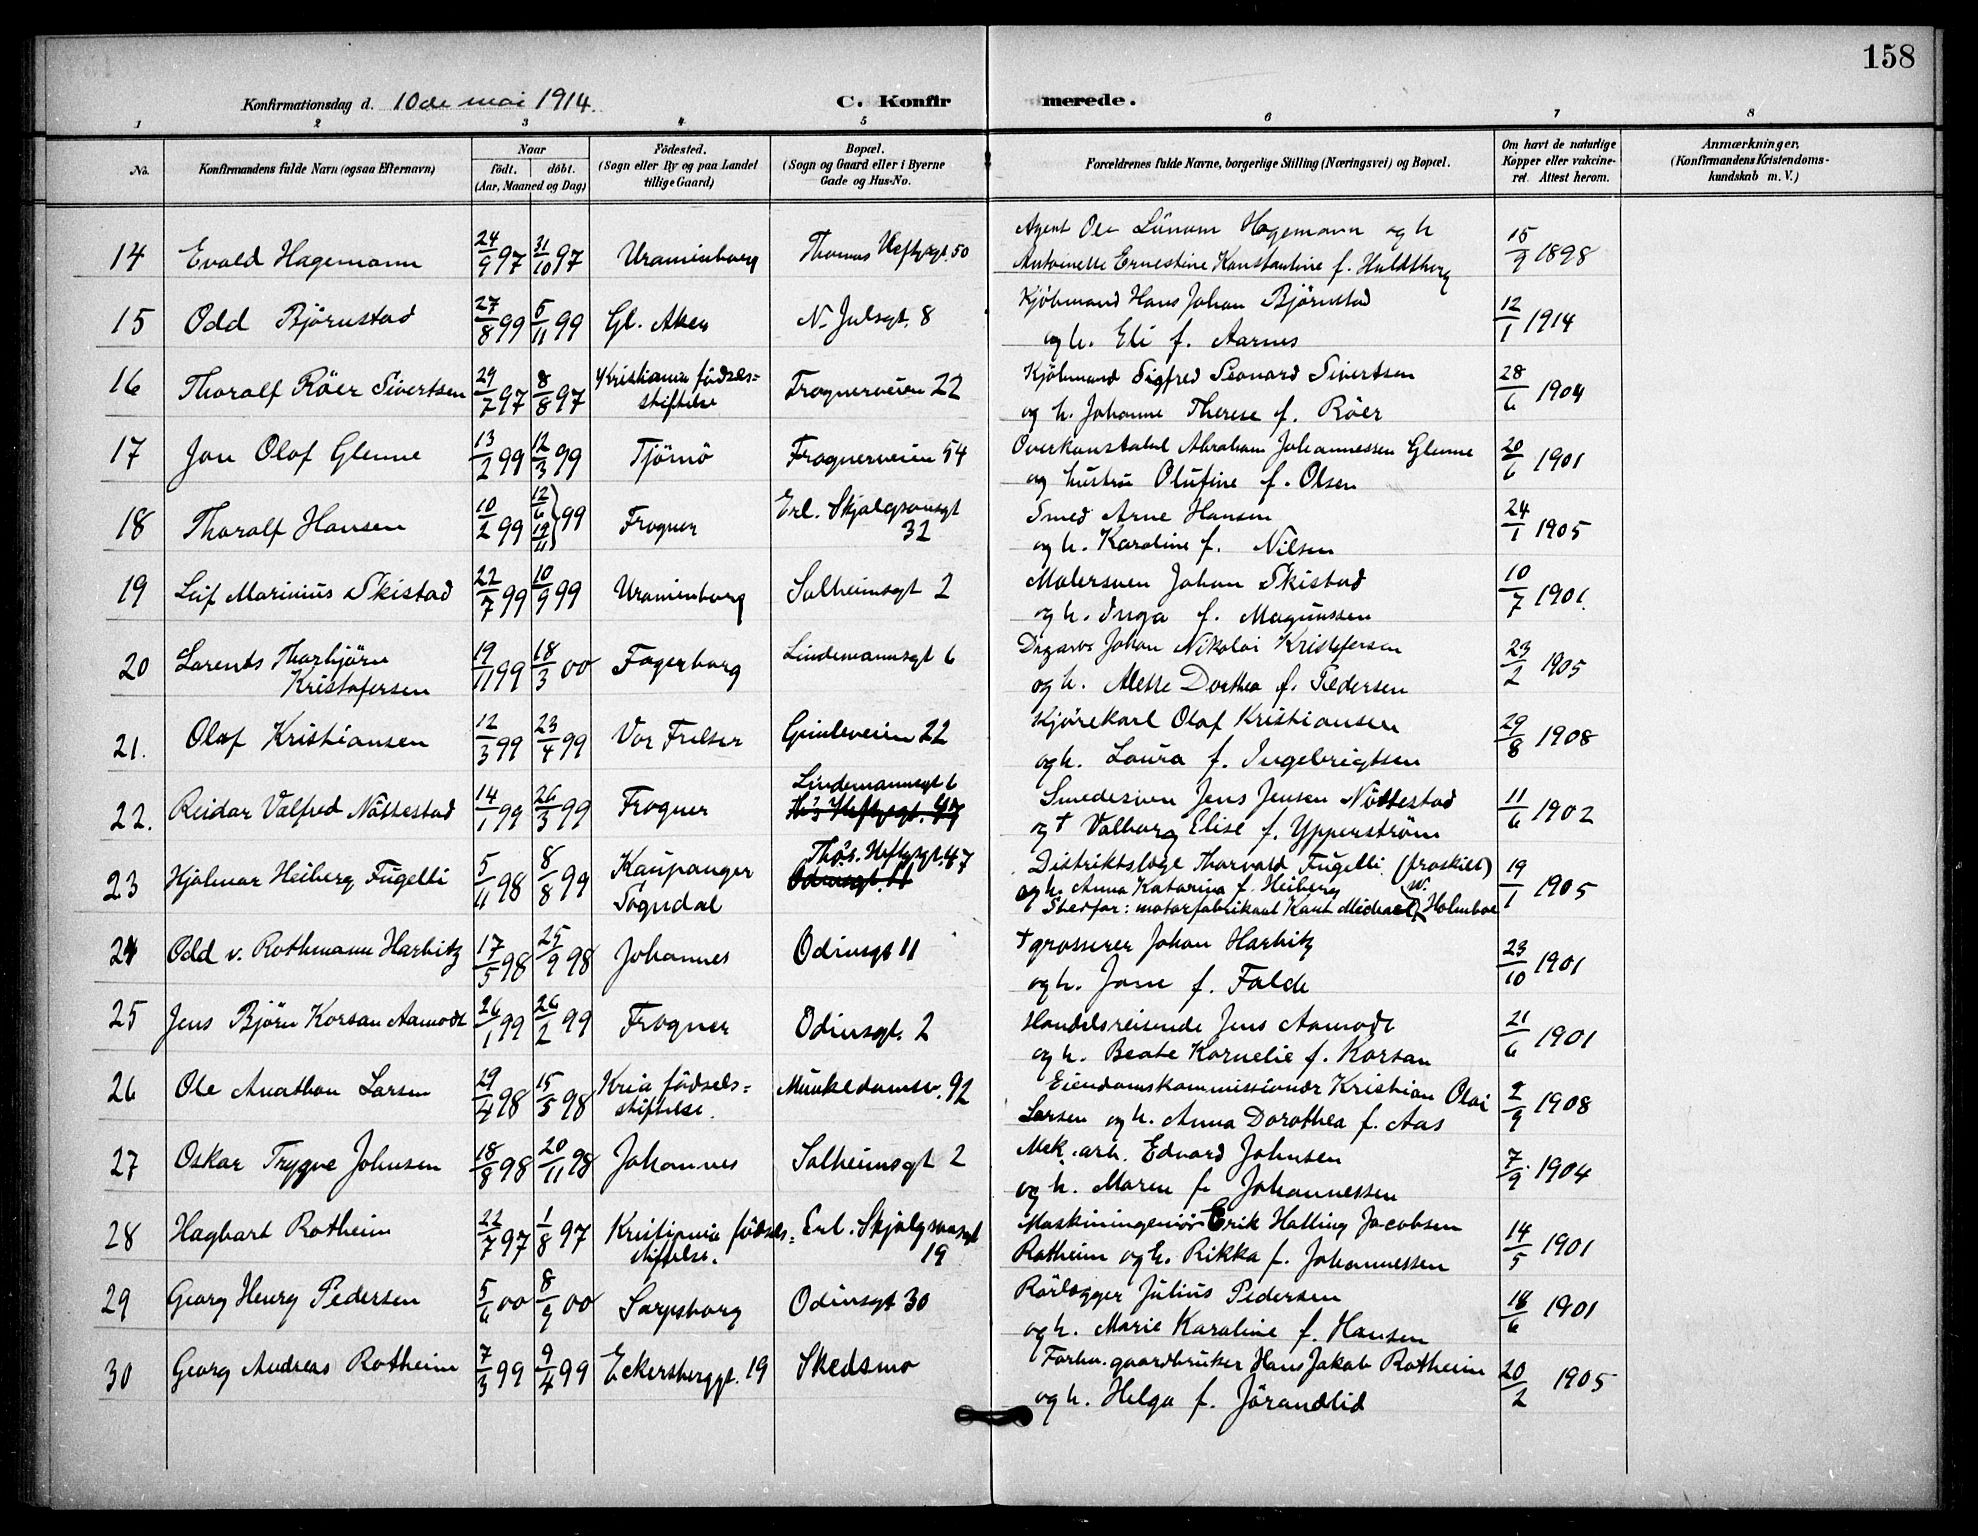 158
Konfirmationsdag d. 10de mai 1914.
C. Konfirmerede.
1 2 3 4 5 6 7 8
No. Konfirmandens fulde Navn (ogsaa Efternavn) Naar født. døbt. (Aar, Maaned og Dag) Fødested. (Sogn eller By og paa Landet tillige Gaard) Bopæl. (Sogn og Gaard eller i Byerne Gade og Hus-No. Forældrenes fulde Navne, borgerlige Stilling (Næringsvei) og Bopæl. Om havt de naturlige Kopper eller vakcineret. Attest herom. Anmærkninger, (Konfirmandens Kristendomskundskab m. V.)
14 Evald Hagemann 24/9 97 31/10 97 Uranienborg Thomas Heftyesgt. 50 Agent Ole Hagemann og h
Antoinette Ernestine Konstantine f. Huldtberg 15/9 1898
15 Odd Björnstad 27/8 99 5/11 99 Gl. Aker N. Julsgt. 8 Kjöbmand Hans Johan Björnstad
og h. Eli f. Aarnes 12/1 1914
16 Thoralf Röer Sivertsen 29/7 97 8/8 97 Kristiania födsels= stiftelse Frognerveien 22 Kjöbmand Sigfred Leonard Sivertsen
og h. Johanne Therese f. Röer 28/6 1904
17 Jon Olaf Glenne 13/2 99 12/3 99 Tjömö Frognerveien 54 Overkonstabel Abraham Johannessen Glenne
og hustru Olufine f. Olsen 20/6 1901
18 Thoralf Hansen 10/2 99 12/6 19/11 } 99 Frogner Erl. Skjalgsonsgt 32 Smed Arne Hansen
og h. Karoline f. Nilsen 24/1 1905
19 Leif Marinius Skistad 22/7 99 10/9 99 Uranienborg Solheimsgt 2 Malersven Johan Skistad
og h. Inga f. Magnussen 10/7 1901.
20 Lorents Thorbjörn
Kristofersen 19/11 99 18/3 00 Fagerborg Lindemannsgt 6 Johan Nikolai Kristofersen
og h. Alette Dorthea f. Pedersen 23/2 1905
21. Olaf Kristiansen 12/3 99 23/4 99 Vor Frelser Gimleveien 22 Kjörekarl Olaf Kristiansen
og h. Laura f. Ingebrigtsen 29/8 1908
22. Reidar Valfred Nöttestad 14/1 99 26/3 99 Frogner Lindemannsgt 6
Th's Heftyesgt. 47 Smedesven Jens Jensen Nöttestad
og † Valborg Elise f. Ypperström 11/6 1902
23 Hjalmar Heiberg Fugelli 5/11 98 8/8 99 Kaupanger
Sogndal Tho's. Heftyesgt. 47
Odinsgt. 11 Distriktslæge Thorvald Fugelli (fraskilt)
og h. Anna Katarina f. Heiberg
Stedfar: motorfabrikant Kant Michael W. Holmboe 19/1 1905
24 Odd v. Rothmann Harbitz 17/5 98 25/9 98 Johannes Odinsgt 11 † grosserer Johan Harbitz
og h. Jane f. Falde 23/10 1901
25 Jens Björn Korsan Aamodt 26/1 99 26/2 99 Frogner Odinsgt. 2 Handelsreisende Jens Aamodt
og h. Beate Kornelie f. Korsan 21/6 1901
26 Ole Anathon Larsen 29/4 98 15/5 98 Kria födsels=
stiftelse. Munkedamsv. 92 Eiendomskommissionær Kristian Olai
Larsen og h. Anna Dorothea f. Aas 2/9 1908
27 Oskar Trygve Johnsen 18/8 98 20/11 98 Johannes Solheimsgt 2 Mek. arb. Edvard Johnsen
og h. Maren f. Johannessen 7/9 1904
28 Hagbart Rotheim 22/7 97 1/8 97 Kristiania födsels=
stiftelse. Erl. Skjalgsonsgt
19 Maskiningeniör Erik Halling Jacobsen
Rotheim og h. Rikka f. Johannessen 14/5 1901
29 Georg Henry Pedersen 5/6 00 8/9 00 Sarpsborg Odinsgt 30 Rörlægger Julius Pedersen
og h. Marie Karoline f. Hansen 18/6 1901
30 Georg Andreas Rotheim 7/3 99 9/4 99 Eckersberggt. 19 Skedsmo Forhv. gaardbruker Hans Jakob Rotheim
og h. Helga f. Jörandlid 20/2 1905